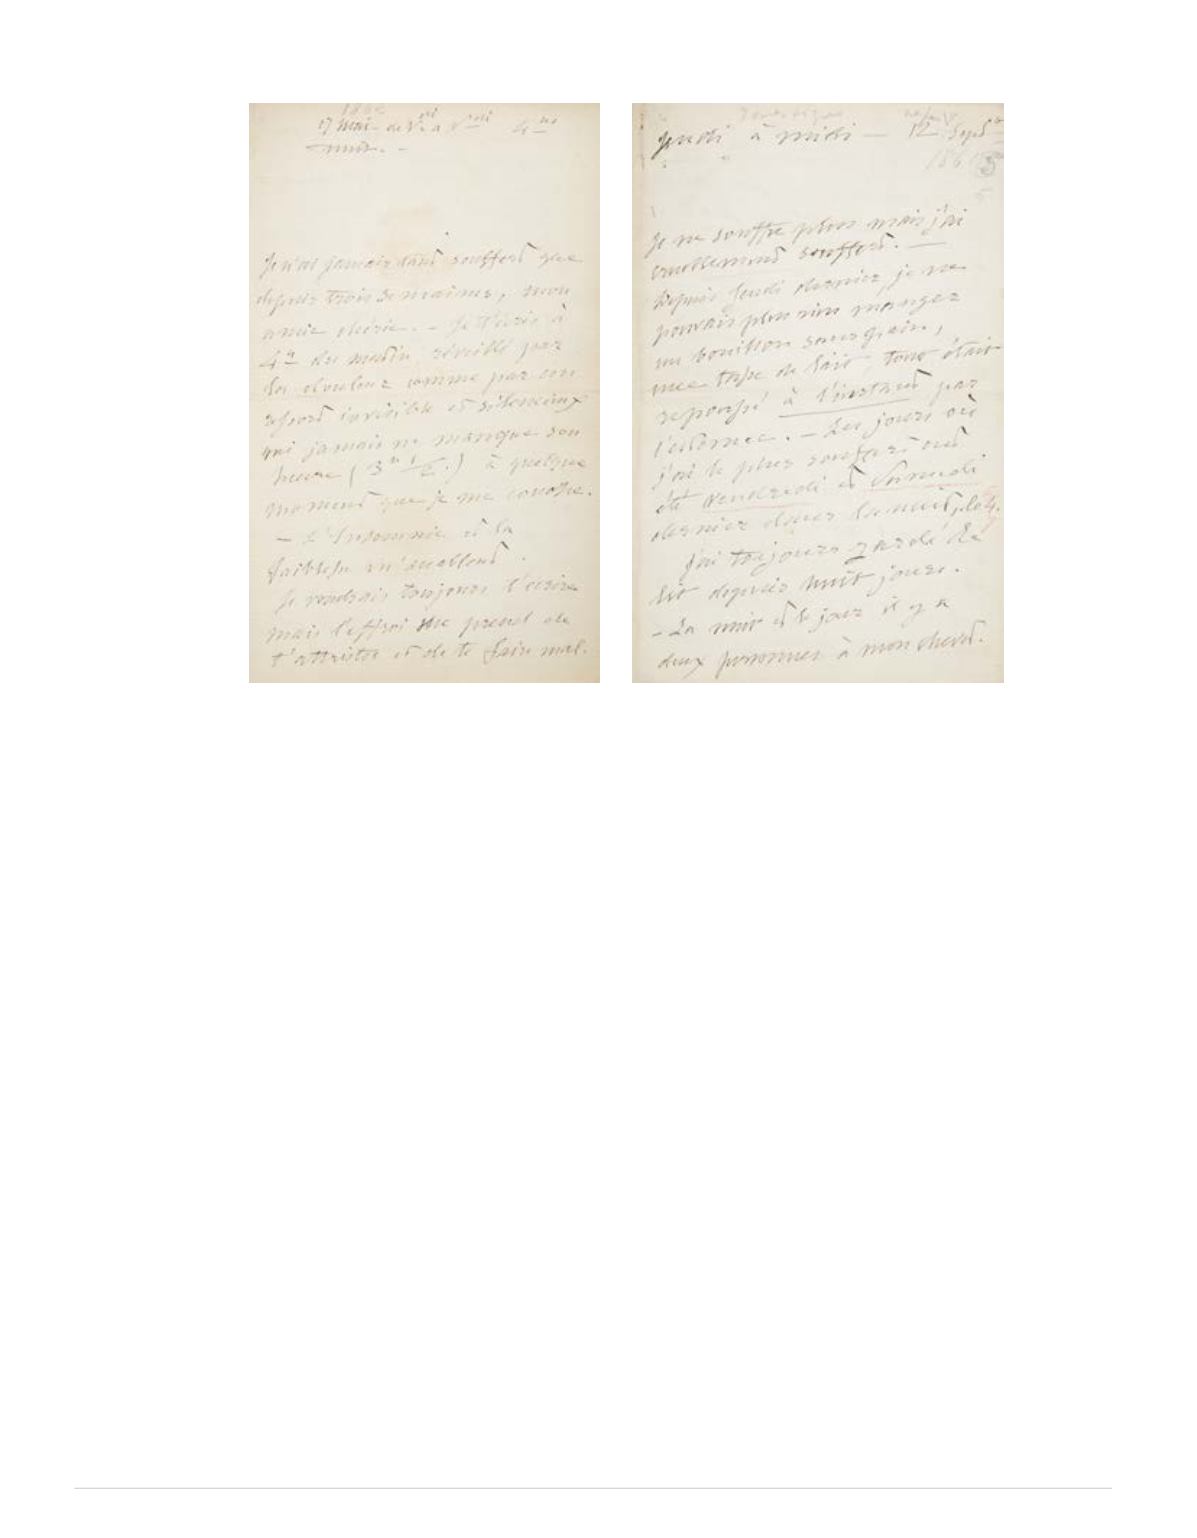 17 Mai
nuit. -
Je n'ai jamais tant souffert que
depuis trois semaines, mon
amie chérie. - Je t'écris à
4h du matin, réveillé par
la douleur comme par un
ressort invisible et silencieux
qui jamais ne manque son
heure (3h 1/2.) à quelque
moment que je me couche.
- L'Insomnie et la
faiblesse m'accablent.
Je voudrais toujours t'écrire
mais l'effroi me prend de
t'attrister et de te faire mal.
Jeudi à midi — 12 Sept
186
Je ne souffre plus mais j'ai
cruellement souffert. —
Depuis Jeudi dernier, je ne
pouvais plus rien manger
un bouillon sans grain,
une tasse de lait, tout était
repoussé à l'instant par
l'estomac. - Les jours où
j'ai le plus souffert ont
été Vendredi et Samedi
dernier dans la nuit,
J'ai toujours gardé le
lit depuis huit jours.
- La nuit et le jour il y a
deux personnes à mon chevet.